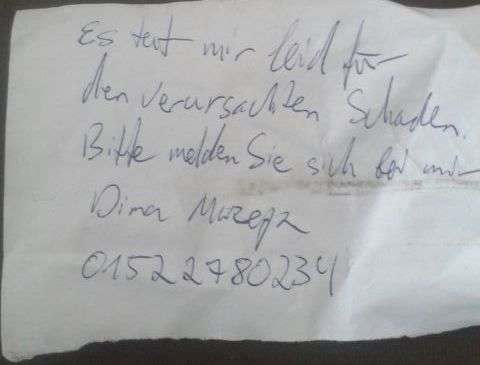 Es tut mir leid für
den verursachten Schaden.
Bitte melden Sie sich bei mir
Dima
01522780234